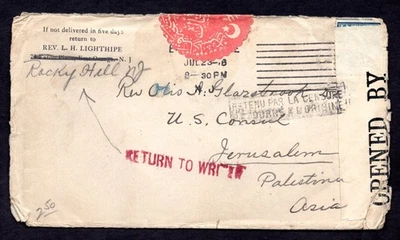 If not delivered in five days
return to
REV. L. H. LIGHTHIPE
N. J
Rocky Hill NJ
JUL 23
8-30 PM
Rev Otis A. Glazebrook
RETENU PAR LA CENSURE
U. S. Consul
RETURN TO WRITER
Jerusalem
Palestine
Asia
OPENED BY
2 50